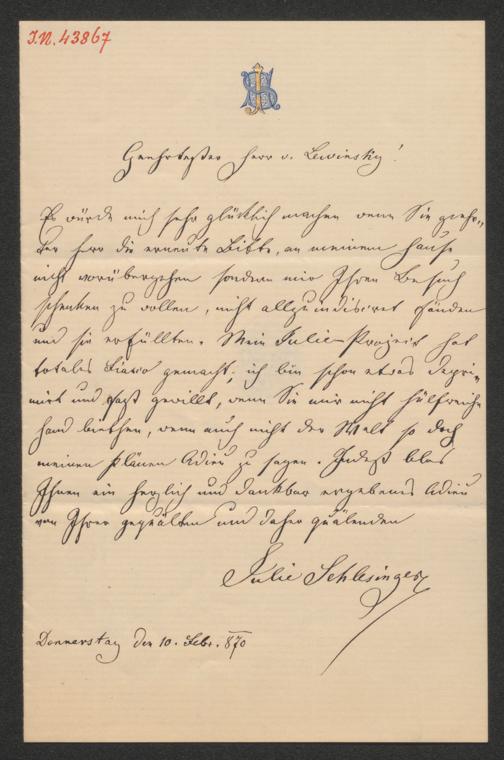 I.N. 43867
JS
Geehrtester Herr v. Lewinsky!
Es würde mich sehr glücklich machen wenn Sie geehr-
ter Herr die erneute Bitte, an meinem Hause
nicht vorüberzugehen sondern mir Ihren Besuch
schenken zu wollen, nicht allzu indiscret fänden
und sie erfüllten. Mein Julie-Project hat
totales Fiasco gemacht; ich bin schon etwas depri-
mirt und fast gewillt, wenn Sie mir nicht hülfreiche
Hand biethen, wenn auch nicht der Welt so doch
meinen Plänen Adieu zu sagen. Indeß blos
Ihnen ein herzlich und dankbar ergebenes Adieu
von Ihrer gequälten und daher quälenden
Julie Schlesinger
Donnerstag den 10. Febr. 870